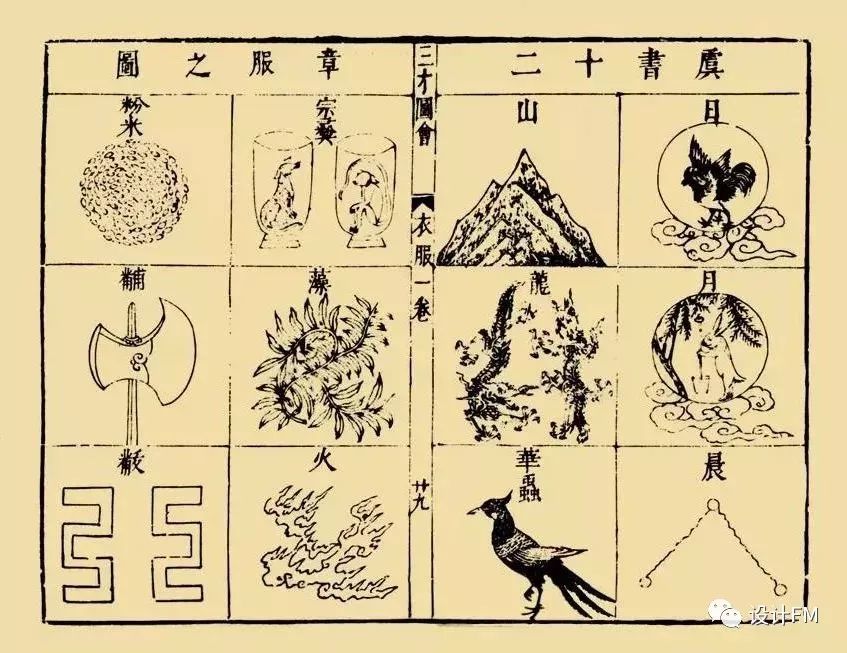 虞書十二
日
月
晨
山
龍
華蟲
三才圖會
衣服一卷
廿九
章服之圖
宗彝
藻
火
粉米
黼
黻
设计FM